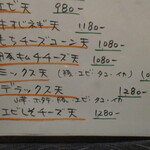 エビ天 980-
牛すじねぎ天 1180-
もちチーズコーン天 1080-
明太もちチーズ天 1080-
ミックス天 (豚、エビ・タコ・イカ) 1080-
デラックス天 1280-
豚、エビ・タコ・イカ
エビしそチーズ天 1280-